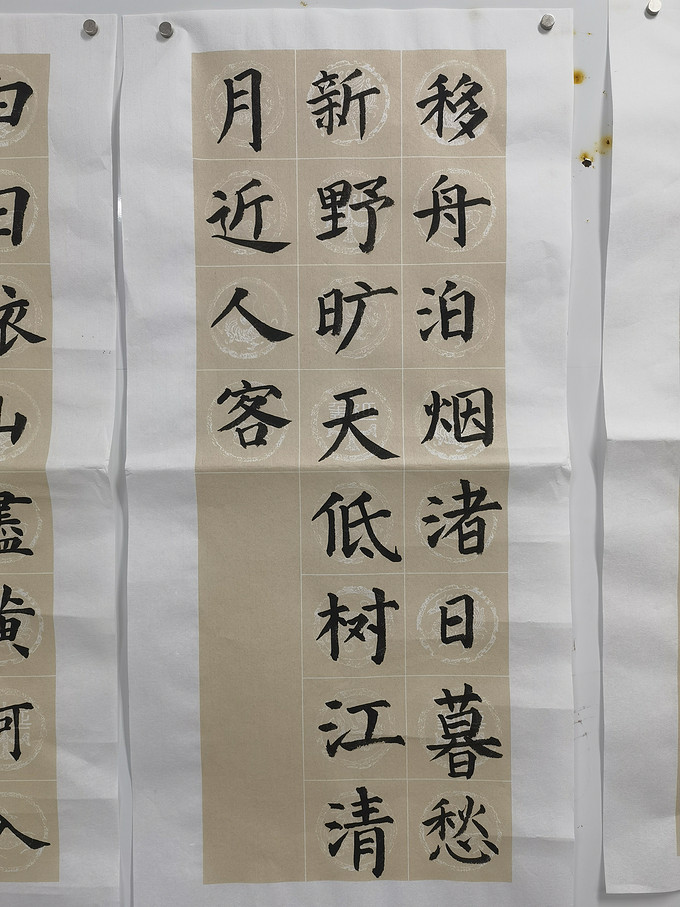 移舟泊烟渚日暮愁
新野旷天低树江清
月近人客
白日依山盡黄河入